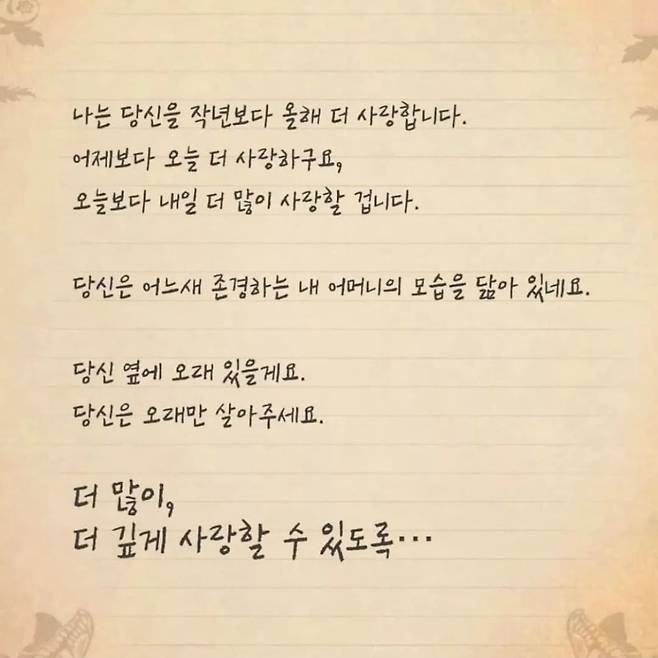 나는 당신을 작년보다 올해 더 사랑합니다.
어제보다 오늘 더 사랑하구요,
오늘보다 내일 더 많이 사랑할 겁니다.
당신은 어느새 존경하는 내 어머니의 모습을 닮아 있네요.
당신 옆에 오래 있을게요.
당신은 오래만 살아주세요.
더 많이,
더 깊게 사랑할 수 있도록…